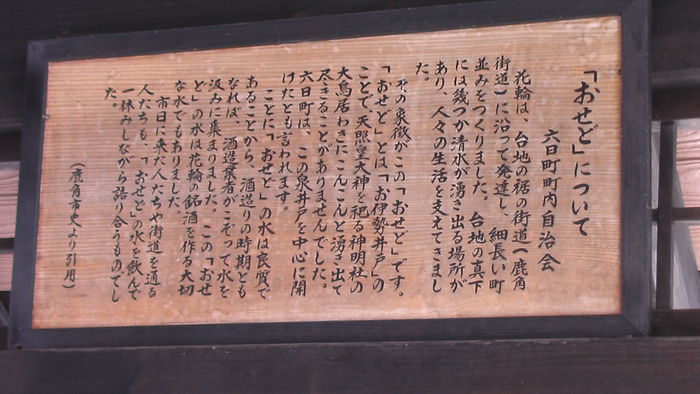 「おせど」について
六日町町内自治会
花輪は、台地の裾の街道(鹿角
街道)に沿って発達し、細長い町
並みをつくりました。台地の真下
には幾つか清水が湧き出る場所が
あり、人々の生活を支えてきまし
た。
その象徴がこの「おせど」です。
「おせど」とは「お伊勢井戸」の
ことで、天照皇大神を祀る神明社の
大鳥居わきにこんこんと湧き出て
尽きることがありませんでした。
六日町は、この泉井戸を中心に開
けたとも言われます。
ことに「おせど」の水は良質で
あることから、酒造りの時期とも
なれば、酒造業者がこぞって水を
汲みに集まりました。この「おせ
ど」の水は花輪の銘酒を作る大切
な水でもありました。
市日に来た人たちや街道を通る
人たちも、「おせど」の水を飲んで
一休みしながら語り合うものでし
た。
(鹿角市史より引用)